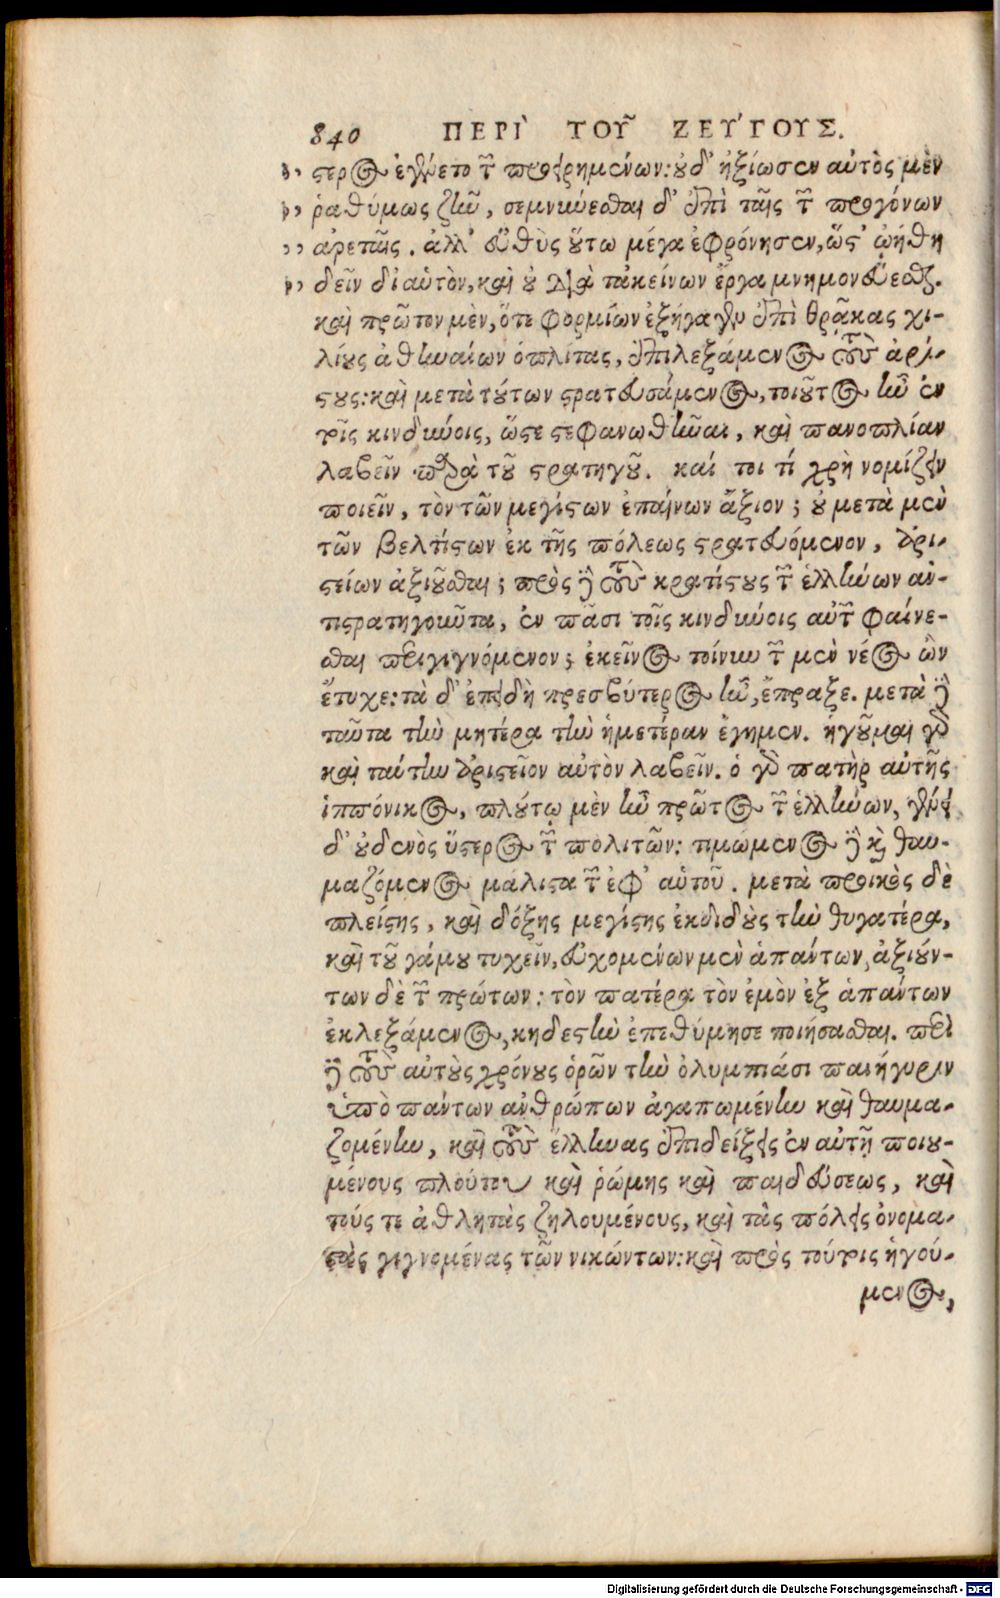 840 ΠΕΡῚ ΤΟΥ͂ ΖΕΥΓΟΥΣ.
στερος ἐγένετο τῶν προειρημένων: οὐδ' ἠξίωσεν αὐτὸς μὲν
ῥαθύμως ζῆν, σεμνύνεσθαι δ' ἐπὶ ταῖς τῶν προγόνων
ἀρεταῖς. ἀλλ' εὐθὺς οὕτω μέγα ἐφρόνησεν, ὥς' ᾠήθη
δεῖν δι' αὑτὸν, καὶ οὐ διὰ τἀκείνων ἔργα μνημονεύεσθαι.
καὶ πρῶτον μὲν, ὅτε φορμίων ἐξήγαγεν ἐπὶ θρᾷκας χι-
λίους ἀθηναίων ὁπλίτας, ἐπιλεξάμενος τοὺς ἀρί-
στους: καὶ μετὰ τούτων στρατευσάμενος, τοιοῦτος ἦν ἐν
τοῖς κινδύνοις, ὥστε στεφανωθῆναι, καὶ πανοπλίαν
λαβεῖν παρὰ τοῦ στρατηγοῦ. καί τοι τί χρὴ νομίζειν
ποιεῖν, τὸν τῶν μεγίστων ἐπαίνων ἄξιον; οὐ μετὰ μὲν
τῶν βελτίστων ἐκ τῆς πόλεως στρατευόμενον, ἀρι-
στείων ἀξιοῦσθαι; πρὸς δὲ τοὺς κρατίστους τῶν ἑλλήνων ἀν-
τιστρατηγοῦντα, ἐν πᾶσι τοῖς κινδύνοις αὐτῶν φαίνε-
σθαι περιγιγνόμενον; ἐκεῖνος τοίνυν τῶν μὲν νέος ὢν
ἔτυχε: τὰ δ' ἐπειδὴ πρεσβύτερος ἦν, ἔπραξε. μετὰ δὲ
ταῦτα τὴν μητέρα τὴν ἡμετέραν ἔγημεν. ἡγοῦμαι γὰρ
καὶ ταύτην ἀριστεῖον αὐτὸν λαβεῖν. ὁ γὰρ πατὴρ αὐτῆς
ἱππόνικος, πλούτῳ μὲν ἦν πρῶτος τῶν ἑλλήνων, γένει
δ' οὐδενὸς ὕστερος τῶν πολιτῶν: τιμώμενος δὲ καὶ θαυ-
μαζόμενος μάλιστα τῶν ἐφ' αὑτοῦ. μετὰ προικὸς δὲ
πλείστης, καὶ δόξης μεγίστης ἐκδιδοὺς τὴν θυγατέρα,
καὶ τοῦ γάμου τυχεῖν, εὐχομένων μὲν ἁπάντων, ἀξιούν-
των δὲ τῶν πρώτων: τὸν πατέρα τὸν ἐμὸν ἐξ ἁπάντων
ἐκλεξάμενος, κηδεστὴν ἐπεθύμησε ποιήσασθαι. περὶ
δὲ τοὺς αὐτοὺς χρόνους ὁρῶν τὴν ὀλυμπιάσι πανήγυριν
ὑπὸ πάντων ἀνθρώπων ἀγαπωμένην καὶ θαυμα-
ζομένην, καὶ τοὺς ἕλληνας ἐπιδείξεις ἐν αὐτῇ ποιου-
μένους πλούτου καὶ ῥώμης καὶ παιδεύσεως, καὶ
τούς τε ἀθλητὰς ζηλουμένους, καὶ τὰς πόλεις ὀνομα-
στὰς γιγνομένας τῶν νικώντων: καὶ πρὸς τούτοις ἡγού-
μενος,
Digitalisierung gefördert durch die Deutsche Forschungsgemeinschaft - DFG